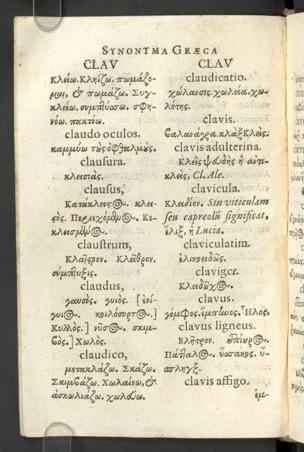 SYNONYMA GRÆCA
CLAV
Κλείω. Κληΐζω. πωμάζο-
μαι, & πωμάζω. Συγ-
κλείω. συμπτύσσω. σφη-
νόω. πακτόω.
claudo oculos.
καμμύω τοὺς ὀφθαλμούς.
clausura.
κλεισιάς.
clausus,
Κατάκλειστος. κλει-
στός. Περιεχόμενος. Κε-
κλεισμένος.
claustrum,
Κλαῖστρον. Κλεῖθρον.
σύμπηξις.
claudus,
γαυσός. γυιός. [ἐνί-
γυιος. κοιλόσυρτος.]
Κυλλός.] νῦσος. σκιμ-
βός.] Χωλός.
claudico,
μετακλάζω. Σκάζω.
Σκιμβάζω. Χωλαίνω, &
ἀσκωλιάζω. χωλεύω.
CLAV
claudicatio.
χώλανσις. χωλεία. χω-
λότης.
clavis.
βαλανάγρα. κλὰξ Κλείς.
clavis adulterina.
Κλεὶς ψευδὴς ἢ ἀντι-
κλείς, Cl. Ale.
clavicula.
Κλειδίον. Sin viticulam
seu capreolũ significat,
ἕλιξ, ἡ Lucia.
claviculatim.
ἑλικοειδῶς.
claviger.
Κλειδοῦχος.
clavus.
γόμφος. ἔμπηνος. Ἧλος.
clavus ligneus.
Βλῆτρον. ἐπίουρος.
Πάτταλος. ὕσσακος. ὕ-
σπληγξ.
clavis affigo.
ἐμ-